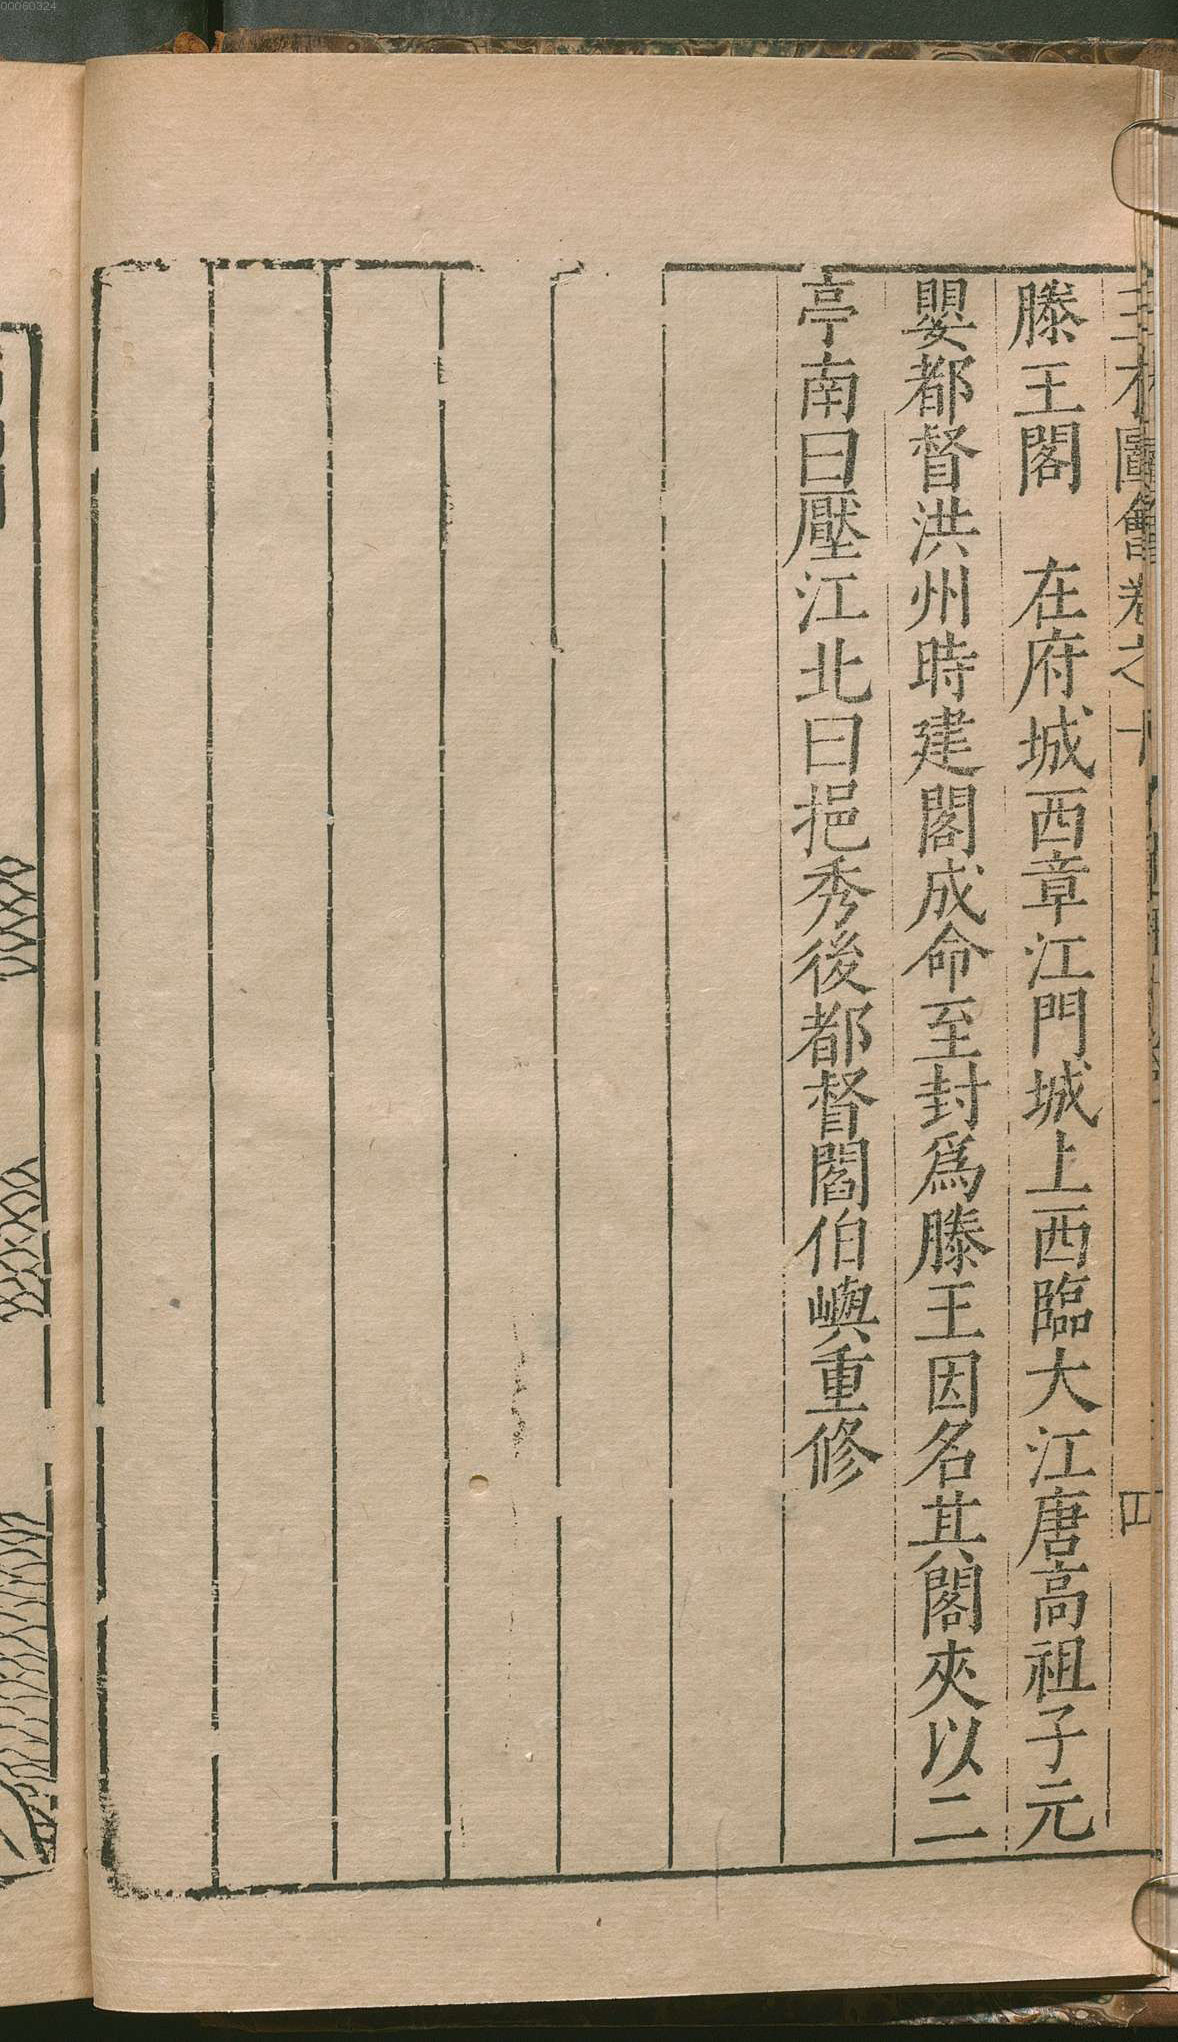 三才圖會卷之十
四
滕王閣 在府城西章江門城上西臨大江唐高祖子元
嬰都督洪州時建閣成命至封爲滕王因名其閣夾以二
亭南曰壓江北曰挹秀後都督閻伯嶼重修
00060324